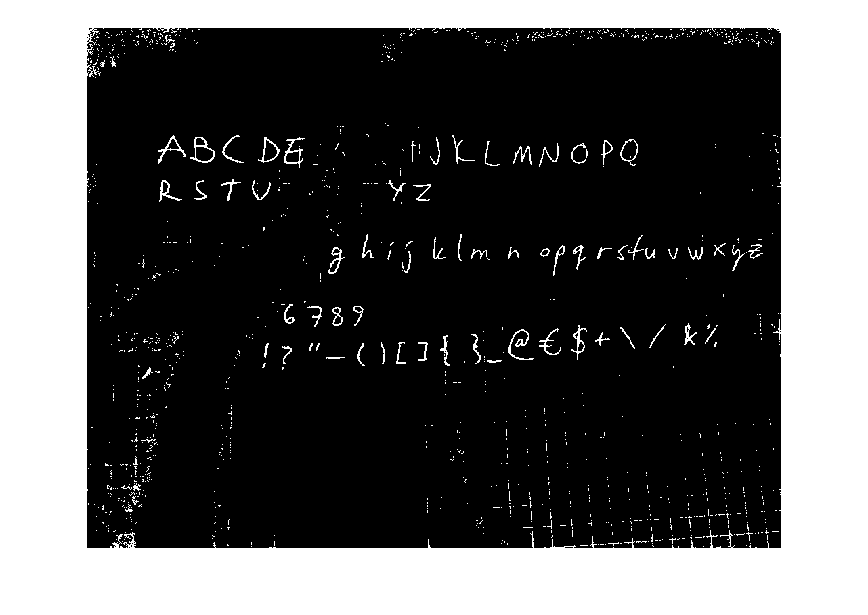 ABCDE IJKLMNOPQ
RSTU YZ
ghijklmnopqrstuvwxyz
6789
!?"-()[]{}_@€$+\/&%